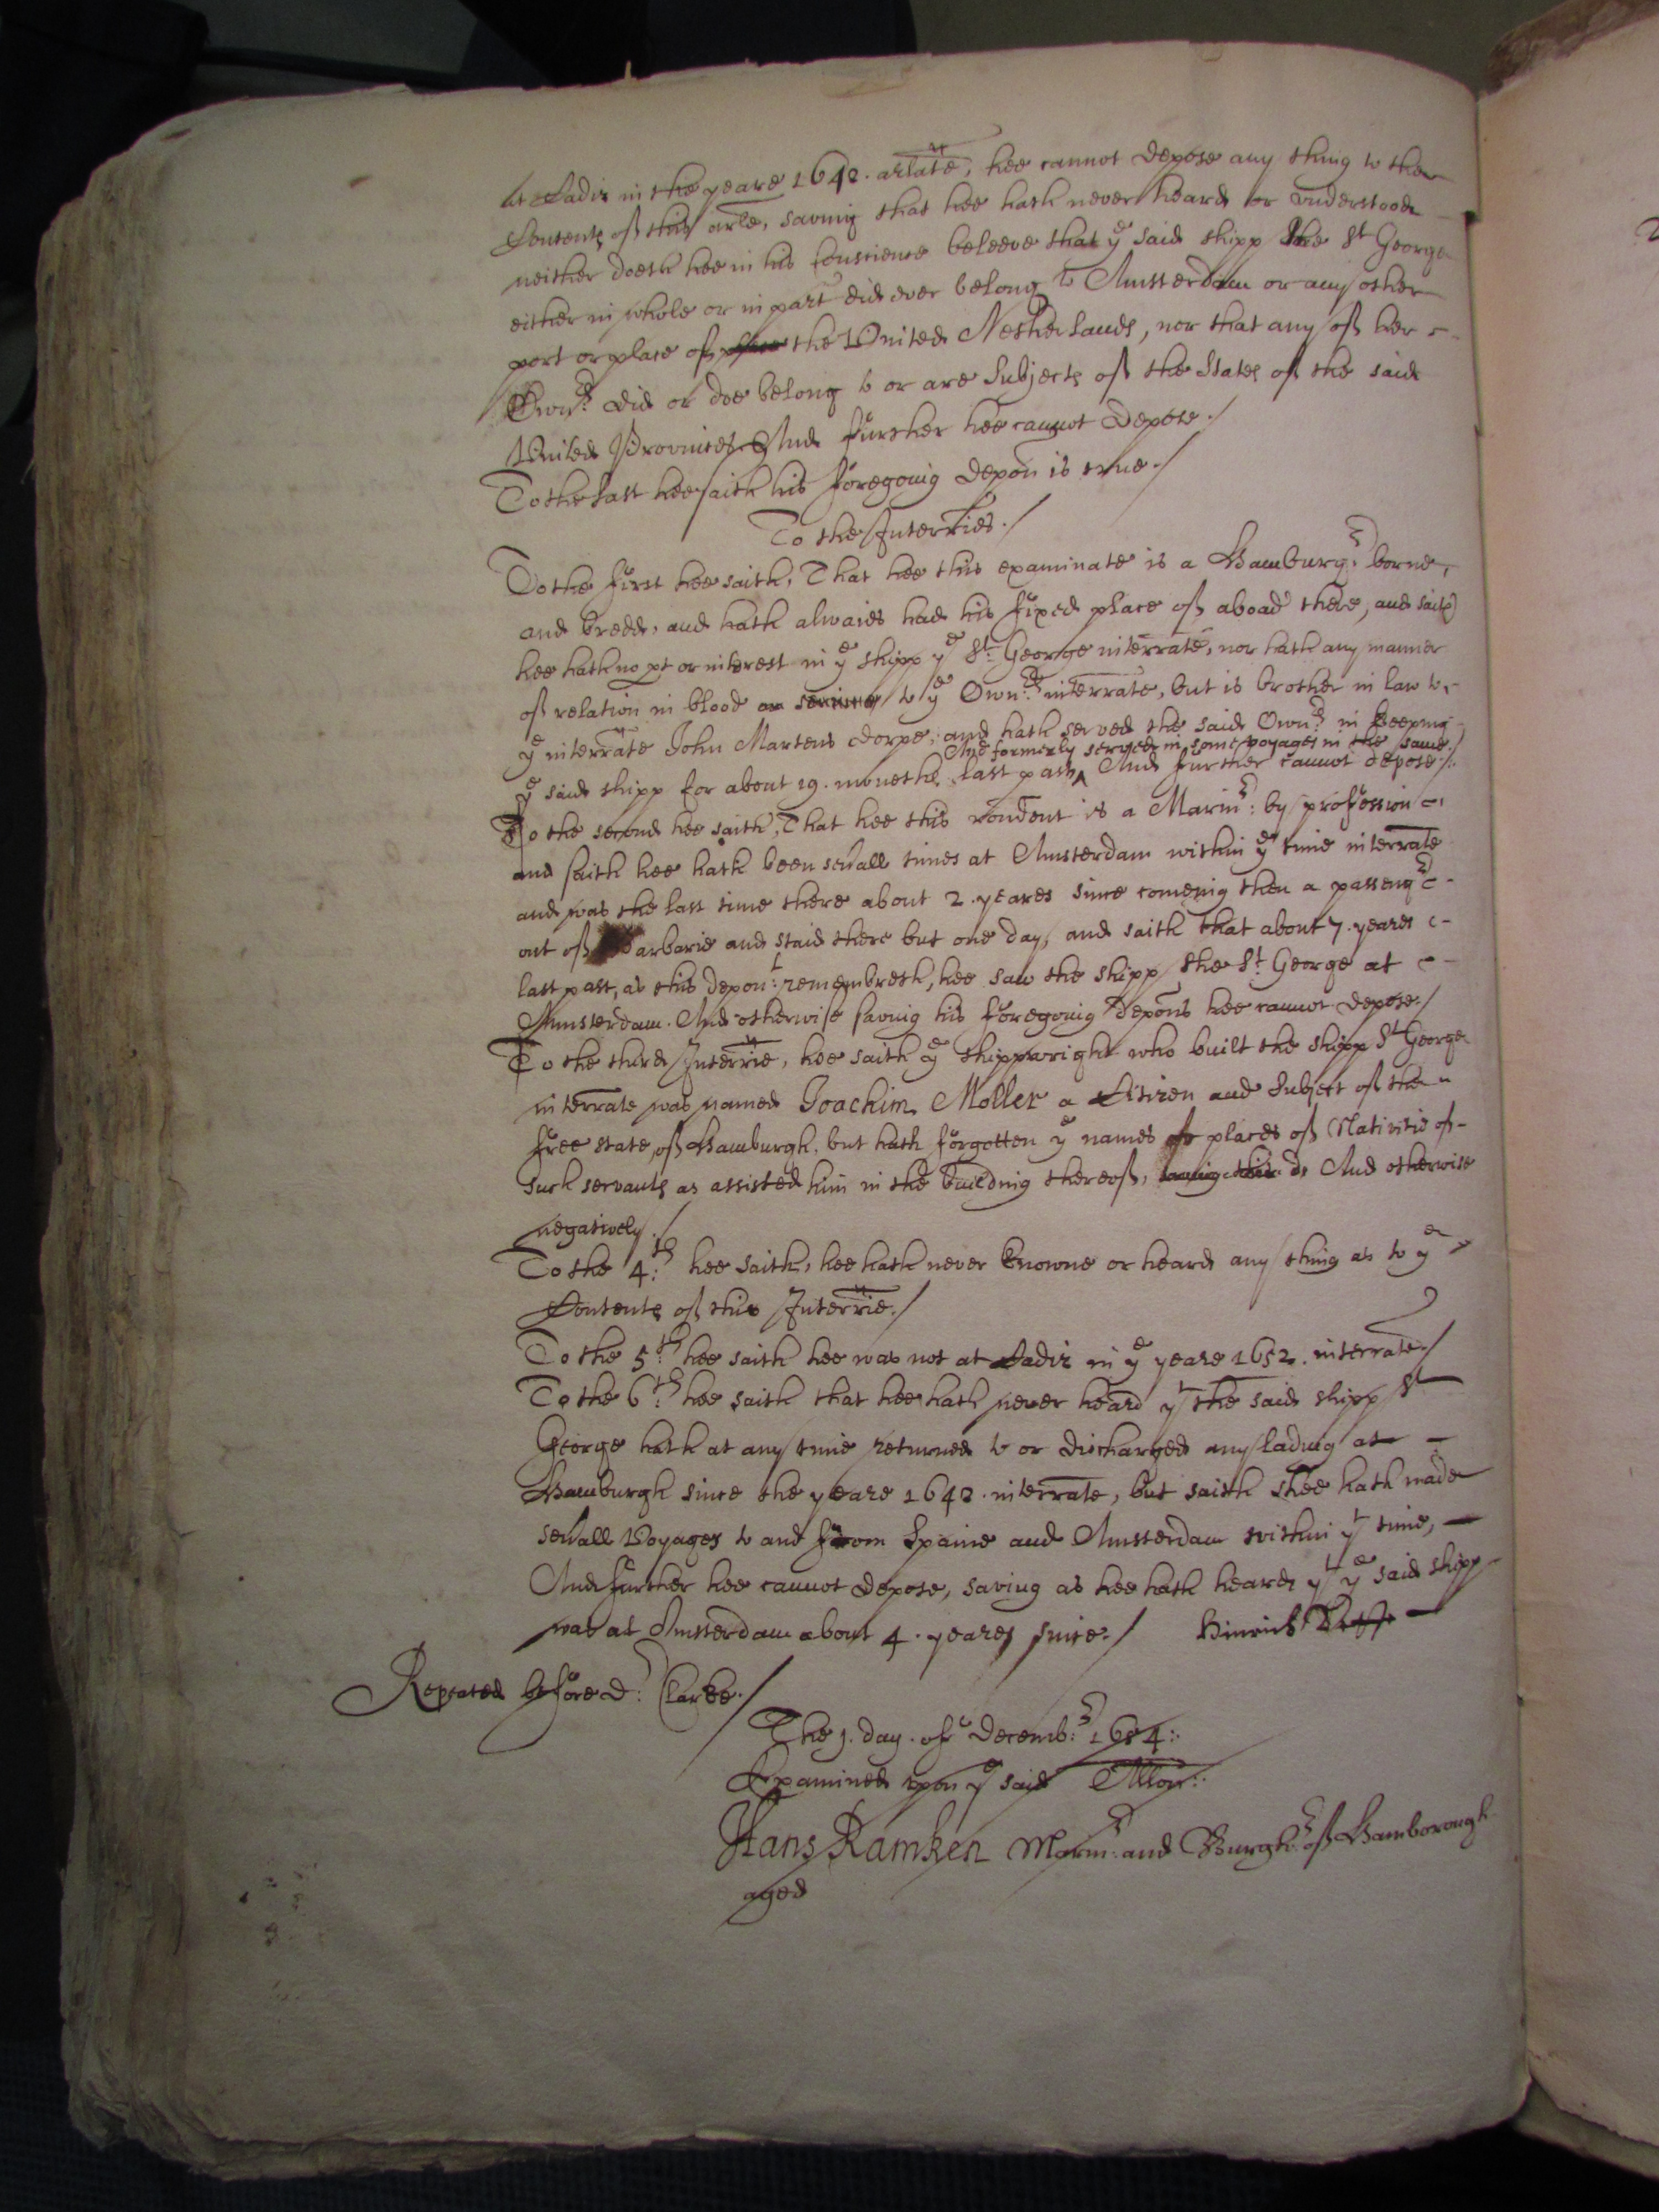 at Cadiz in the yeare 1642. arlate, hee cannot depose any thing to the
Contents of this arle, saving that hee hath never heard or understood
neither doeth hee in his Conscience beleeve that ye said shipp the St George
either in whole or in part did ever belong to Amsterdam or any other
port or place of the United Netherlands, nor that any of her
Ownrs did or doe belong to or are Subjects of the States of the said
United Provinces And further hee cannot depose./
To the last hee saith his foregoing depon is true./
To the Interries./
To the first hee saith, That hee this examinate is a Hamburgr borne,
and bredd, and hath alwaies had his fixed place of aboad there, and saith
hee hath no pt or interest in ye shipp ye St George interrate, nor hath any manner
of relation in blood or service to ye Ownrs interrate, but is brother in law to
ye interrate John Martens dorpe, and hath served the said Ownrs in keeping
And formerly served in some voyages in the same./
ye said shipp for about 19. moneths last past, And further cannot depose/.
To the second hee saith, That hee this rondent is a Marinr: by profession
and saith hee hath been severall times at Amsterdam within ye time interrate
and was the last time there about 2. yeares since comeing then a passengr
out of Barbarie and staid there but one day, and saith that about 7. yeares
last past, as this depont: remembreth, hee saw the shipp the St George at
Amsterdam. And otherwise saving his foregoing depons hee cannot depose./
To the third Interrie, hee saith ye shippwright who built the shipp St George
interrate was named Joachim Moller a Citizen and Subject of the
free state of Hamburgh, but hath forgotten ye names or places of Nativitie of
such servants as assisted him in the building thereof, And otherwise
negatively./
To the 4:th hee saith, hee hath never knowne or heard any thing as to ye
Contents of this Interrie./
To the 5:th hee saith hee was not at Cadiz in ye yeare 1652. interrate./
To the 6:th hee saith that hee hath never heard yt the said shipp St
George hath at any time returned to or discharged any lading at
Hamburgh since the yeare 1642. interrate, but saith shee hath made
severall Voyages to and from Spaine and Amsterdam within yt time,
And further hee cannot depose, saving as hee hath heard yt ye said shipp
was at Amsterdam about 4. yeares since./ Hinrich
Repeated before Dr: Clarke./
The 1. day. of Decembr: 1654:.
Examined upon ye said Allon:.
Hans Ramken Marinr: and Burghr: of Hamborough
aged